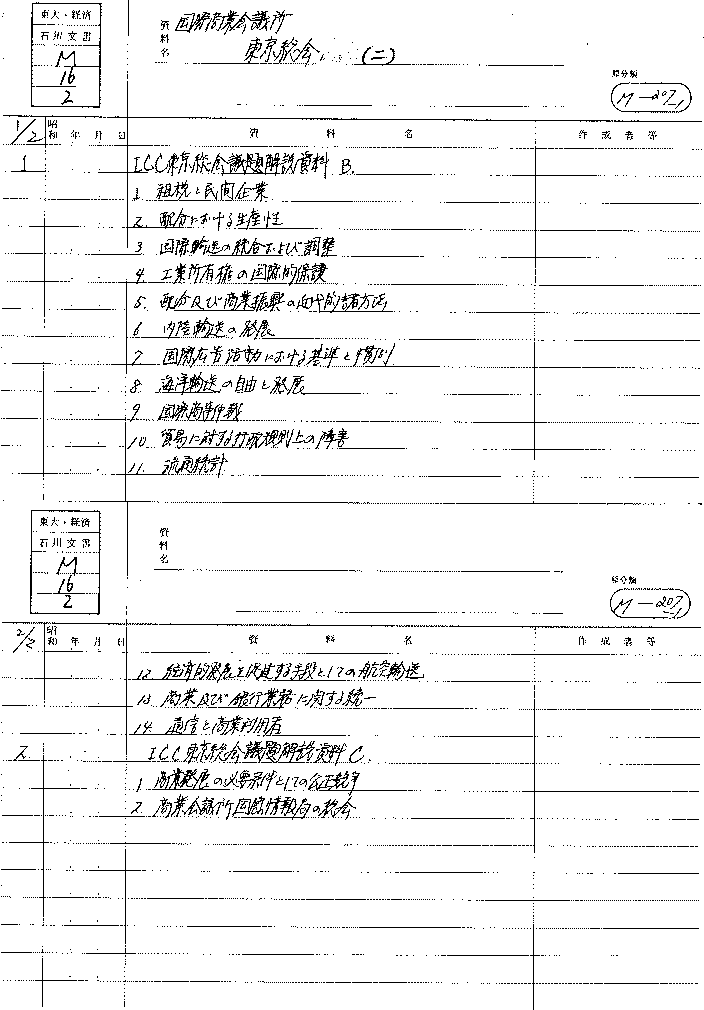 東大・経済
石川文書
M
16
2
資料名 国際商業会議所
東京総会 (二)
原分類
M-207/1
1/2 昭和 年 月 日 資料名 作成者等
1 ICC東京総会議題解説資料 B.
1 租税と民間企業
2. 配分における生産性
3 国際輸送の統合および調整
4. 工業所有権の国際的保護
5. 配分及び商業振興の近代的諸方法
6 内陸輸送の発展
7 国際広告活動における基準と慣例
8 海洋輸送の自由と発展
9 国際商事仲裁
10 貿易に対する行政規則上の障害
11. 流通統計
東大・経済
石川文書
M
16
2
資料名
原分類
M-207/1
2/2 昭和 年 月 日 資料名 作成者等
12. 経済的発展を促進する手段としての航空輸送
13 商業及び銀行業務に関する統一
14. 通信と商業利用者
2 ICC東京総会議題解説資料 C.
1 商業発展の必要条件としての公正競争
2 商業会議所国際情報局の総会